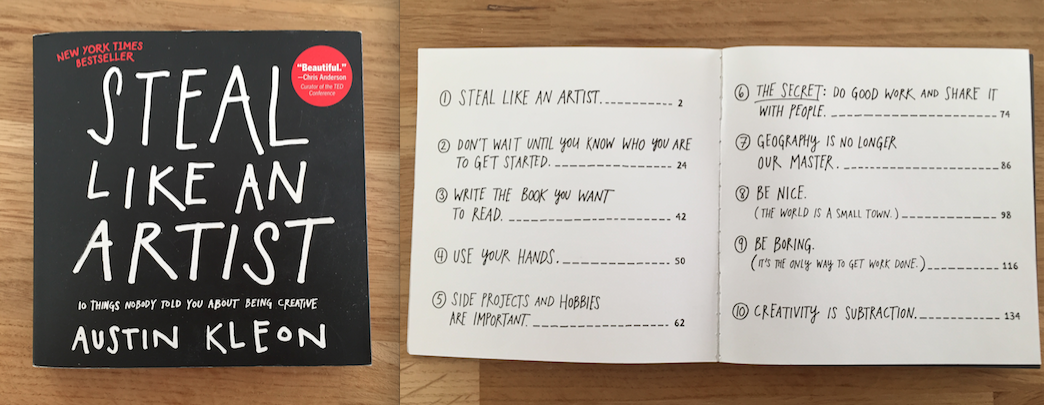 NEW YORK TIMES
BESTSELLER
"Beautiful."
—Chris Anderson
Curator of the TED
Conference
STEAL
LIKE AN
ARTIST
10 THINGS NOBODY TOLD YOU ABOUT BEING CREATIVE
AUSTIN KLEON
① STEAL LIKE AN ARTIST. 2
② DON'T WAIT UNTIL YOU KNOW WHO YOU ARE
TO GET STARTED. 24
③ WRITE THE BOOK YOU WANT
TO READ. 42
④ USE YOUR HANDS. 50
⑤ SIDE PROJECTS AND HOBBIES
ARE IMPORTANT. 62
⑥ THE SECRET: DO GOOD WORK AND SHARE IT
WITH PEOPLE. 74
⑦ GEOGRAPHY IS NO LONGER
OUR MASTER. 86
⑧ BE NICE.
(THE WORLD IS A SMALL TOWN.) 98
⑨ BE BORING.
(IT'S THE ONLY WAY TO GET WORK DONE.) 116
⑩ CREATIVITY IS SUBTRACTION. 134